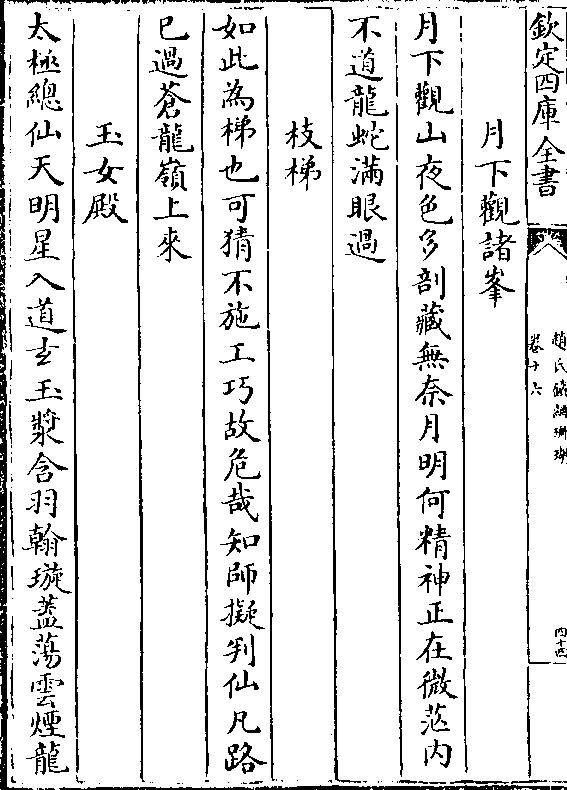 欽定四庫全書
趙氏鐵網珊瑚
卷十六
四十四
月下觀諸峯
月下觀山夜色多剖藏無奈月明何精神正在微茫内
不道龍蛇滿眼過
枝梯
如此為梯也可猜不施工巧故危哉知師擬判仙凡路
已過蒼龍嶺上來
玉女殿
太極總仙天明星入道玄玉漿含羽翰璇蓋蕩雲煙龍